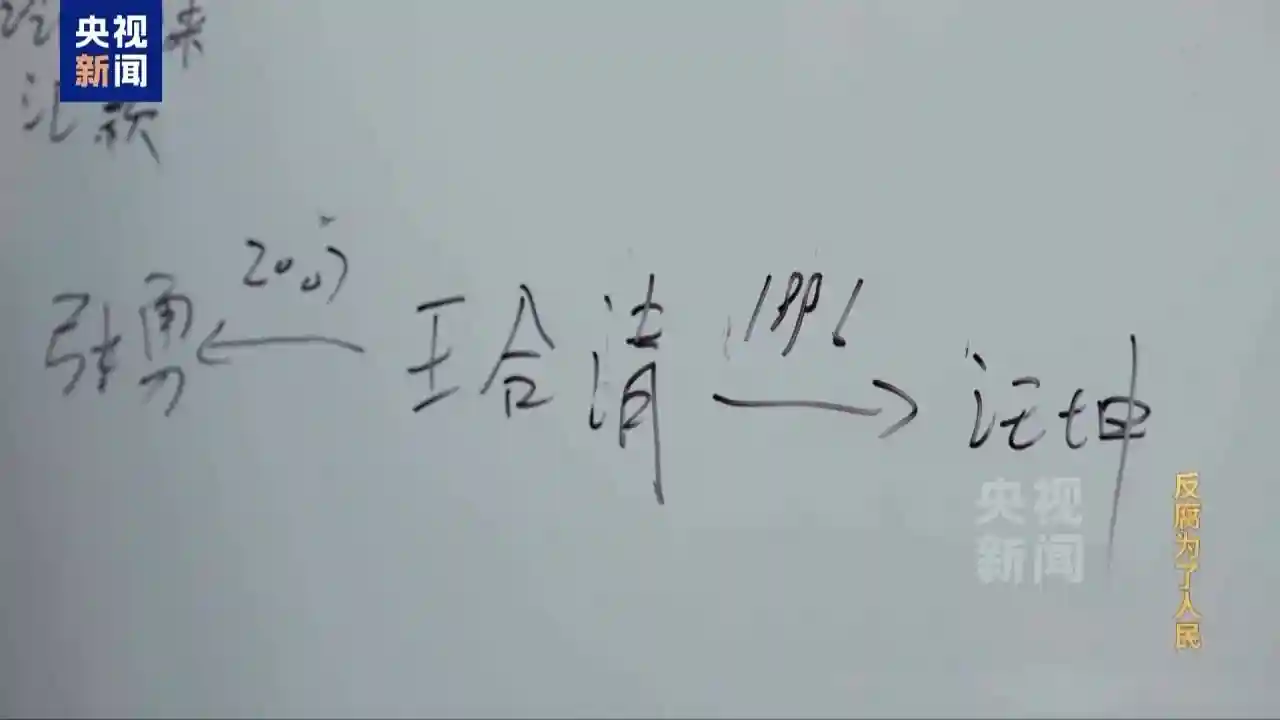 央视
新闻
来
汇款
张勇 ← 2007 王合清 1996 → 汪坤
央视
新闻
反腐为了人民